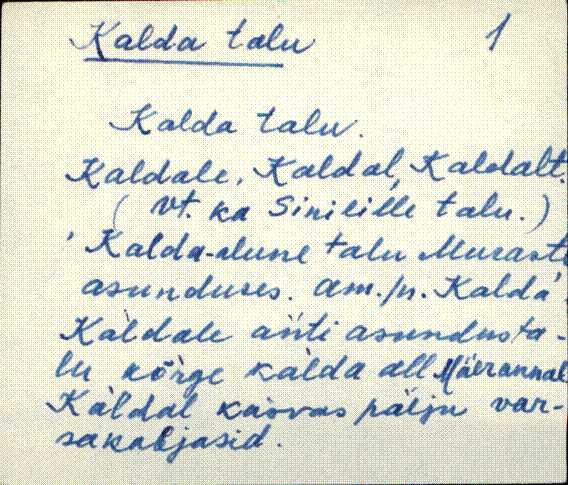 Kalda talu 1
Kalda talu.
Kaldale, Kaldal, Kaldalt.
( vt. ka Sinilille talu.)
'Kalda-alune talu Muraste
asunduses. am./n. Kalda'.
Kàldale añti asundusta-
lu kõrge kàlda all Mäerannal
Kàldal kasvas pàlju var-
sakabjasid.